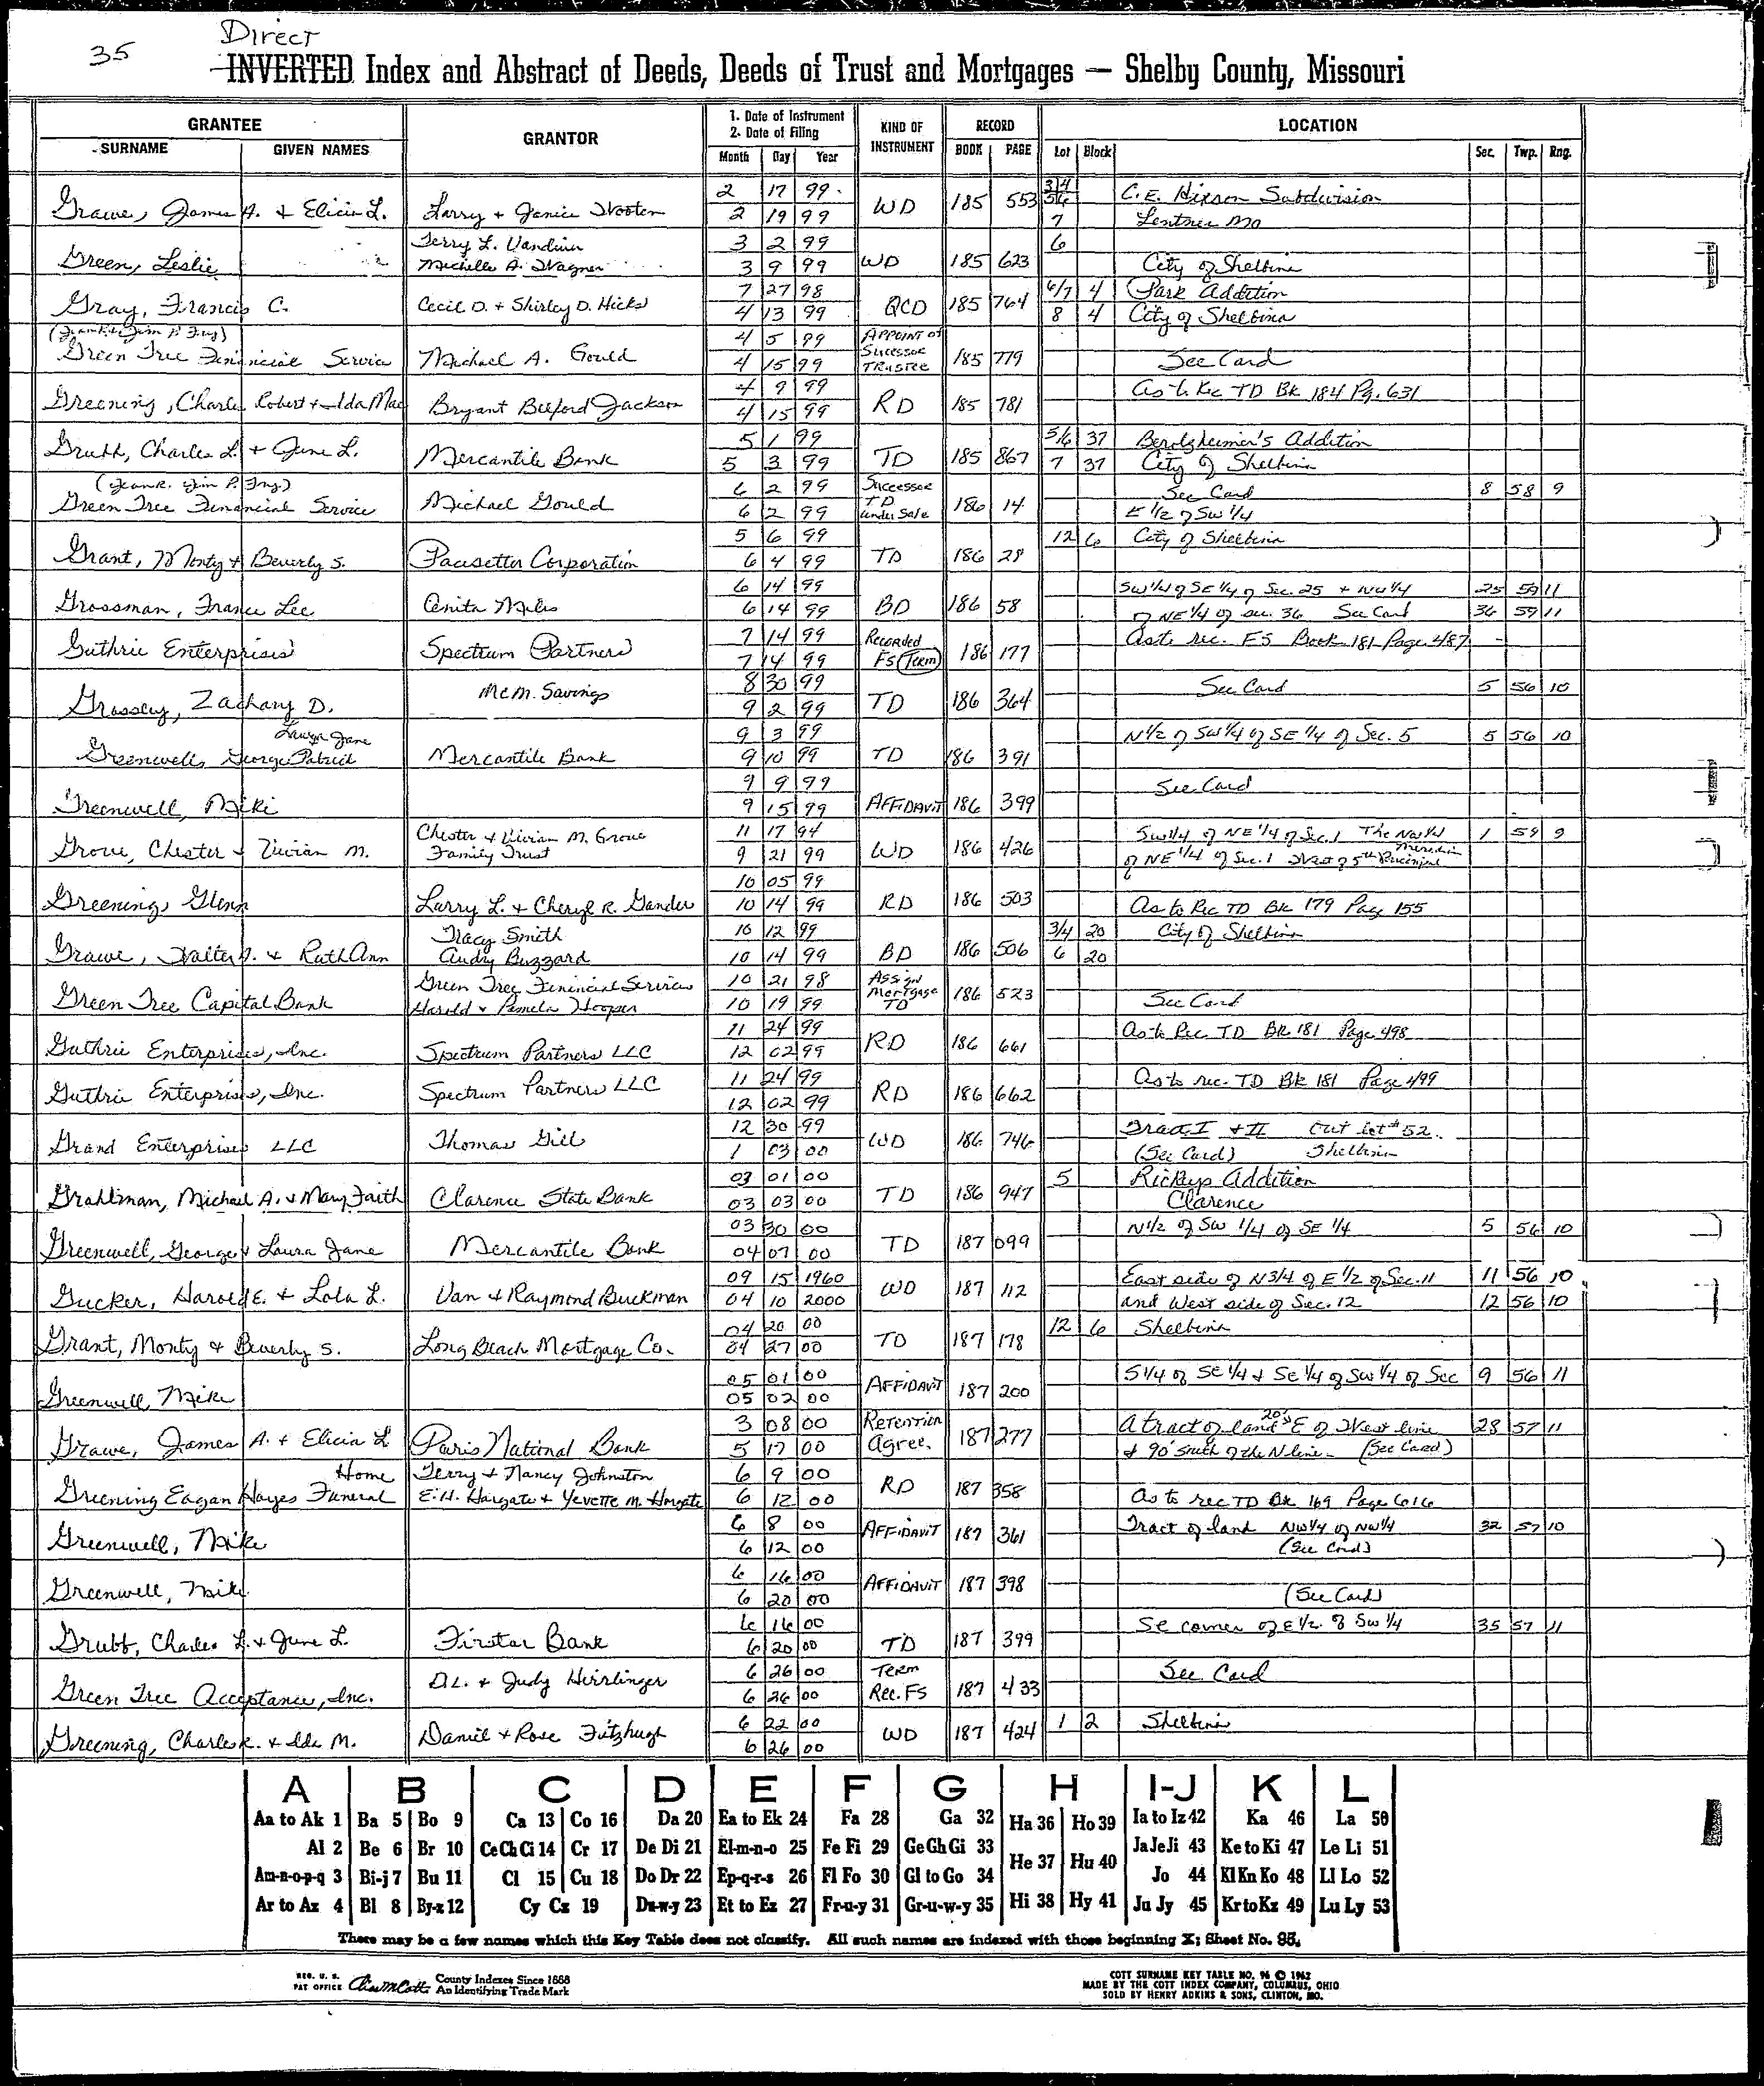 35
Direct
INVERTED Index and Abstract of Deeds, Deeds of Trust and Mortgages — Shelby County, Missouri
GRANTEE GRANTOR 1. Date of Instrument 2. Date of Filing KIND OF INSTRUMENT RECORD LOCATION
SURNAME GIVEN NAMES Month Day Year BOOK PAGE Lot Block Sec. Twp. Rng.
2 17 99 3/4 C.E. Hixson Subdivision
Grawe, James A. & Elicia L. Larry & Janice Wooten WD 185 553 5/6
2 19 99 7 Lentner Mo
Terry L. Vandiver 3 2 99 6
Green, Leslie Michelle A. Wagner 3 9 99 WD 185 623 City of Shelbina
7 27 98 6/7 4 Park Addition
Gray, Francis C. Cecil D. & Shirley D. Hicks QCD 185 764
4 13 99 8 4 City of Shelbina
4 5 99 APPOINT of
Green Tree Financial Service Michael A. Gould Sucessor Trustee 185 779 See Card
4 15 99
4 9 99 As to Rec TD Bk 184 Pg. 631
Greening, Charles Robert & Ida Mae Bryant Buford Jackson RD 185 781
4 15 99
5 1 99 5/6 37 Bendzheimer's Addition
Grubb, Charles L. & June L. Mercantile Bank TD 185 867
5 3 99 7 37 City of Shelbina
6 2 99 Successor See Card 8 58 9
Green Tree Financial Service Michael Gould TD under Sale 186 14
6 2 99 E 1/2 of SW 1/4
5 6 99 12 6 City of Shelbina
Grant, Monty & Beverly S. Pacesetter Corporation TD 186 28
6 4 99
6 14 99 SW 1/4 of SE 1/4 of Sec. 25 + NW 1/4 25 59 11
Grossman, France Lee Anita Miles BD 186 58
6 14 99 of NE 1/4 of sec. 36 See Card 36 59 11
7 14 99 Recorded As to rec. FS Book 181 Page 487
Guthrie Enterprises Spectrum Partners FS (Term) 186 177
7 14 99
8 30 99 See Card 5 56 10
Grossley, Zachary D. McM. Savings TD 186 364
9 2 99
Laura Jane 9 3 99 N 1/2 of SW 1/4 of SE 1/4 of Sec. 5 5 56 10
Greenwell, George Patrick Mercantile Bank TD 186 391
9 10 99
9 9 99 See Card
Greenwell, Mike AFFIDAVIT 186 399
9 15 99
Chester & Vivian M. Grove 11 17 94 SW 1/4 of NE 1/4 of Sec. 1 The North 1/2 1 59 9
Grove, Chester & Vivian M. Family Trust WD 186 426 Meridian
9 21 99 of NE 1/4 of Sec. 1 West of 5th Principal
10 05 99
Greening, Glenn Larry L. & Cheryl R. Gander RD 186 503
10 14 99 As to Rec TD Bk 179 Page 155
Tracy Smith 10 12 99 3/4 20 City of Shelbina
Grawe, Walter J. & Ruth Ann Andy Buzzard BD 186 506
10 14 99 6 20
Green Tree Financial Services 10 21 98 Assign
Green Tree Capital Bank Harold & Pamela Hooper Mortgage TD 186 523
10 19 99 See Card
11 24 99 As to Rec TD BK 181 Page 498
Guthrie Enterprises, Inc. Spectrum Partners LLC RD 186 661
12 02 99
11 24 99 As to rec. TD Bk 181 Page 499
Guthrie Enterprises, Inc. Spectrum Partners LLC RD 186 662
12 02 99
12 30 99 Tract I + II Out Lot # 52
Grand Enterprises LLC Thomas Gill WD 186 746
1 03 00 (See Card) Shelbina
03 01 00 5 Rickeys Addition
Grahlman, Michael A. & Mary Faith Clarence State Bank TD 186 947
03 03 00 Clarence
03 30 00 N 1/2 of SW 1/4 of SE 1/4 5 56 10
Greenwell, George & Laura Jane Mercantile Bank TD 187 099
04 07 00
09 15 1960 East side of N 3/4 of E 1/2 of Sec. 11 11 56 10
Gucker, Harold E. & Lola L. Van & Raymond Buckman WD 187 112
04 10 2000 and West side of Sec. 12 12 56 10
04 20 00 12 6 Shelbina
Grant, Monty & Beverly S. Long Beach Mortgage Co. TD 187 178
04 27 00
05 01 00 S 1/4 of SE 1/4 & SE 1/4 of SW 1/4 of Sec 9 56 11
Greenwell, Mike AFFIDAVIT 187 200
05 02 00
3 08 00 Retention A tract of land 20's E of West line 28 57 11
Grawe, James A. & Elicia L Paris National Bank Agree. 187 277
5 17 00 & 90' south of the N line - (See Card)
Home Terry & Nancy Johnston 6 9 00
Greening Eagan Hayes Funeral E.H. Hargate & Yevette M. Hargate RD 187 358
6 12 00 As to rec TD Bk 169 Page 616
6 8 00 Tract of land NW 1/4 of NW 1/4 32 57 10
Greenwell, Mike AFFIDAVIT 187 361
6 12 00 (See Card)
6 16 00
Greenwell, Mike AFFIDAVIT 187 398
6 20 00 (See Card)
6 16 00 SE corner of E 1/2 of SW 1/4 35 57 11
Grubb, Charles L. & June L. Firstar Bank TD 187 399
6 20 00
6 26 00 Term See Card
Green Tree Acceptance, Inc. D.L. & Judy Heirlinger Rec. FS 187 433
6 26 00
6 22 00 1 2 Shelbina
Greening, Charles R. & Ida M. Daniel & Rose Fitzhugh WD 187 424
6 26 00
A B C D E F G H I-J K L
Aa to Ak 1 Ba 5 Bo 9 Ca 13 Co 16 Da 20 Ea to Ek 24 Fa 28 Ga 32 Ha 36 Ho 39 Ia to Iz 42 Ka 46 La 50
Al 2 Be 6 Br 10 Ce Ch Ci 14 Cr 17 De Di 21 El-m-n-o 25 Fe Fi 29 Ge Gh Gi 33 He 37 Hu 40 Ja Je Ji 43 Ke to Ki 47 Le Li 51
Am-n-o-p-q 3 Bi-j 7 Bu 11 Cl 15 Cu 18 Do Dr 22 Ep-q-r-s 26 Fl Fo 30 Gl to Go 34 Jo 44 Kl Kn Ko 48 Ll Lo 52
Ar to Az 4 Bl 8 By-z 12 Cy Cz 19 Du-w-y 23 Et to Ez 27 Fr-u-y 31 Gr-u-w-y 35 Hi 38 Hy 41 Ju Jy 45 Kr to Kz 49 Lu Ly 53
There may be a few names which this Key Table does not classify. All such names are indexed with those beginning X; Sheet No. 95.
REG. U. S. PAT OFFICE County Indexes Since 1888 An Identifying Trade Mark
COTT SURNAME KEY TABLE NO. 96 © 1962
MADE BY THE COTT INDEX COMPANY, COLUMBUS, OHIO
SOLD BY HENRY ADKINS & SONS, CLINTON, MO.